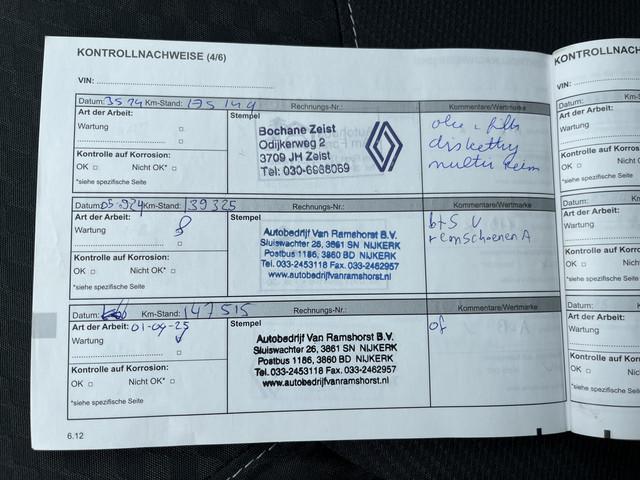 KONTROLLNACHWEISE (4/6)
VIN:
Datum: Km-Stand: Rechnungs-Nr.: Kommentare/Wertmarke
Art der Arbeit: Stempel
Wartung
Kontrolle auf Korrosion:
OK □ Nicht OK* □
*siehe spezifische Seite
Bochane Zeist
Odijkerweg 2
3709 JH Zeist
Tel: 030-6668069
olie + filter
Datum: Km-Stand: 139325 Rechnungs-Nr.: Kommentare/Wertmarke
Art der Arbeit: Stempel
Wartung
Kontrolle auf Korrosion:
OK □ Nicht OK* □
*siehe spezifische Seite
Autobedrijf Van Ramshorst B.V.
Sluiswachter 26, 3861 SN NIJKERK
Postbus 1186, 3860 BD NIJKERK
Tel. 033-2453118 Fax. 033-2462957
www.autobedrijfvanramshorst.nl
b+S V
remschoenen A
Datum: Km-Stand: 147515 Rechnungs-Nr.: Kommentare/Wertmarke
Art der Arbeit: 01-09-25 Stempel
Wartung
Kontrolle auf Korrosion:
OK □ Nicht OK* □
*siehe spezifische Seite
Autobedrijf Van Ramshorst B.V.
Sluiswachter 26, 3861 SN NIJKERK
Postbus 1186, 3860 BD NIJKERK
Tel. 033-2453118 Fax. 033-2462957
www.autobedrijfvanramshorst.nl
of
6.12
KONTROLLNACH
VIN:
Datum:
Art der Arbeit:
Wartung
Kontrolle auf Kor
OK □
*siehe spezifische S
Datum:
Art der Arbeit:
Wartung
Kontrolle auf Korro
OK □ N
*siehe spezifische Seit
Datum:
Art der Arbeit:
Wartung
Kontrolle auf Korros
OK □ Ni
*siehe spezifische Seite